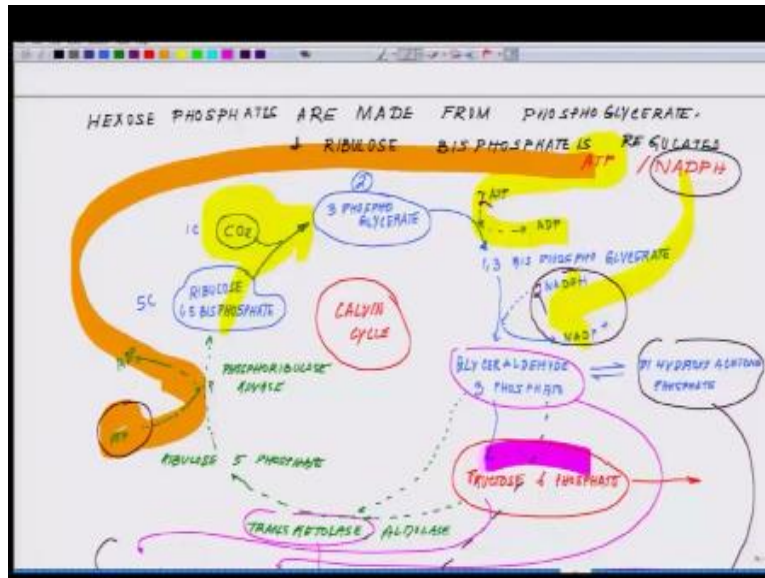 HEXOSE PHOSPHATES ARE MADE FROM PHOSPHOGLYCERATE.
↓ RIBULOSE BISPHOSPHATE IS REGULATED
ATP / NADPH
2
3 PHOSPHO
GLYCERATE
ATP
ADP
1C
CO2
1,3 BIS PHOSPHO GLYCERATE
5C
RIBULOSE
1,5 BISPHOSPHATE
CALVIN
CYCLE
NADPH
NADP+
GLYCERALDEHYDE
3 PHOSPHATE
DIHYDROXY ACETONE
PHOSPHATE
PHOSPHORIBULOSE
KINASE
RIBULOSE 5 PHOSPHATE
FRUCTOSE 6 PHOSPHATE
TRANSKETOLASE ALDOLASE